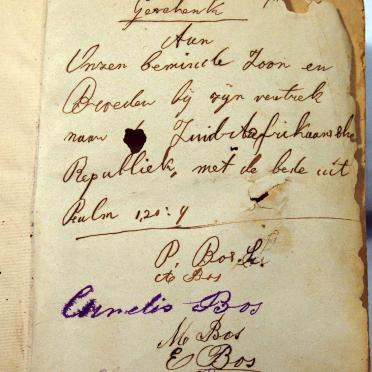 Geschenk
Aan
Onzen beminde Zoon en
Broeder bij zijn vertrek
naar Zuid Afrikaansche
Republiek, met de bede uit
Psalm 120: 4
P. Bos Sr.
A Bos
Cornelis Bos
M Bos
E Bos